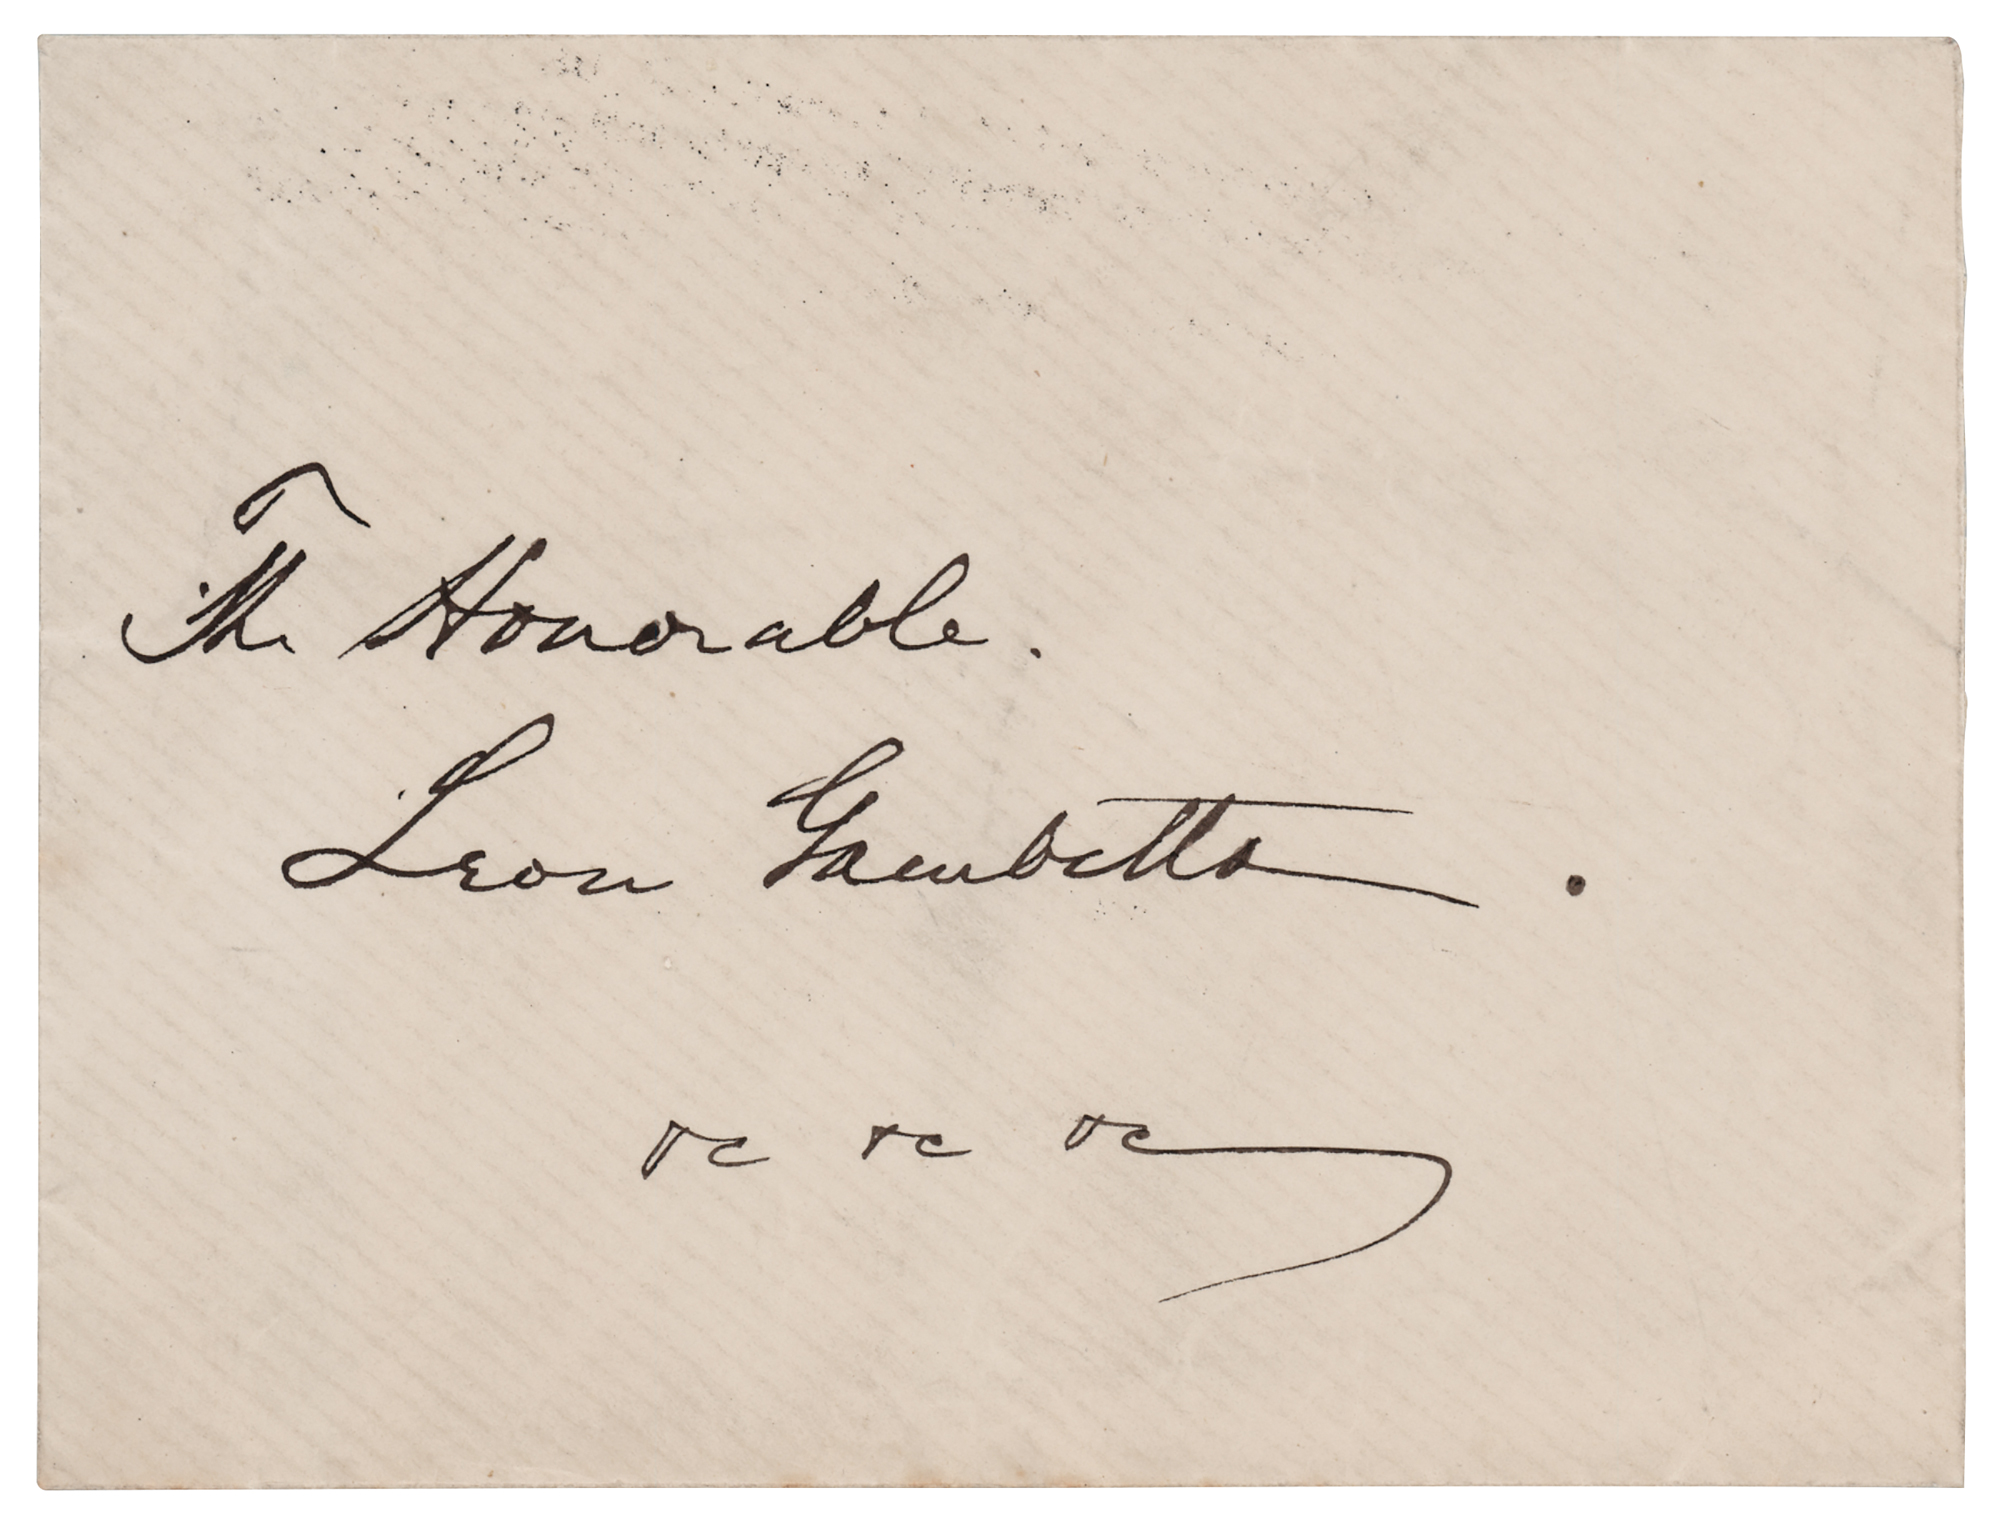 The Honorable.
Leon Gambetta .
&c &c &c